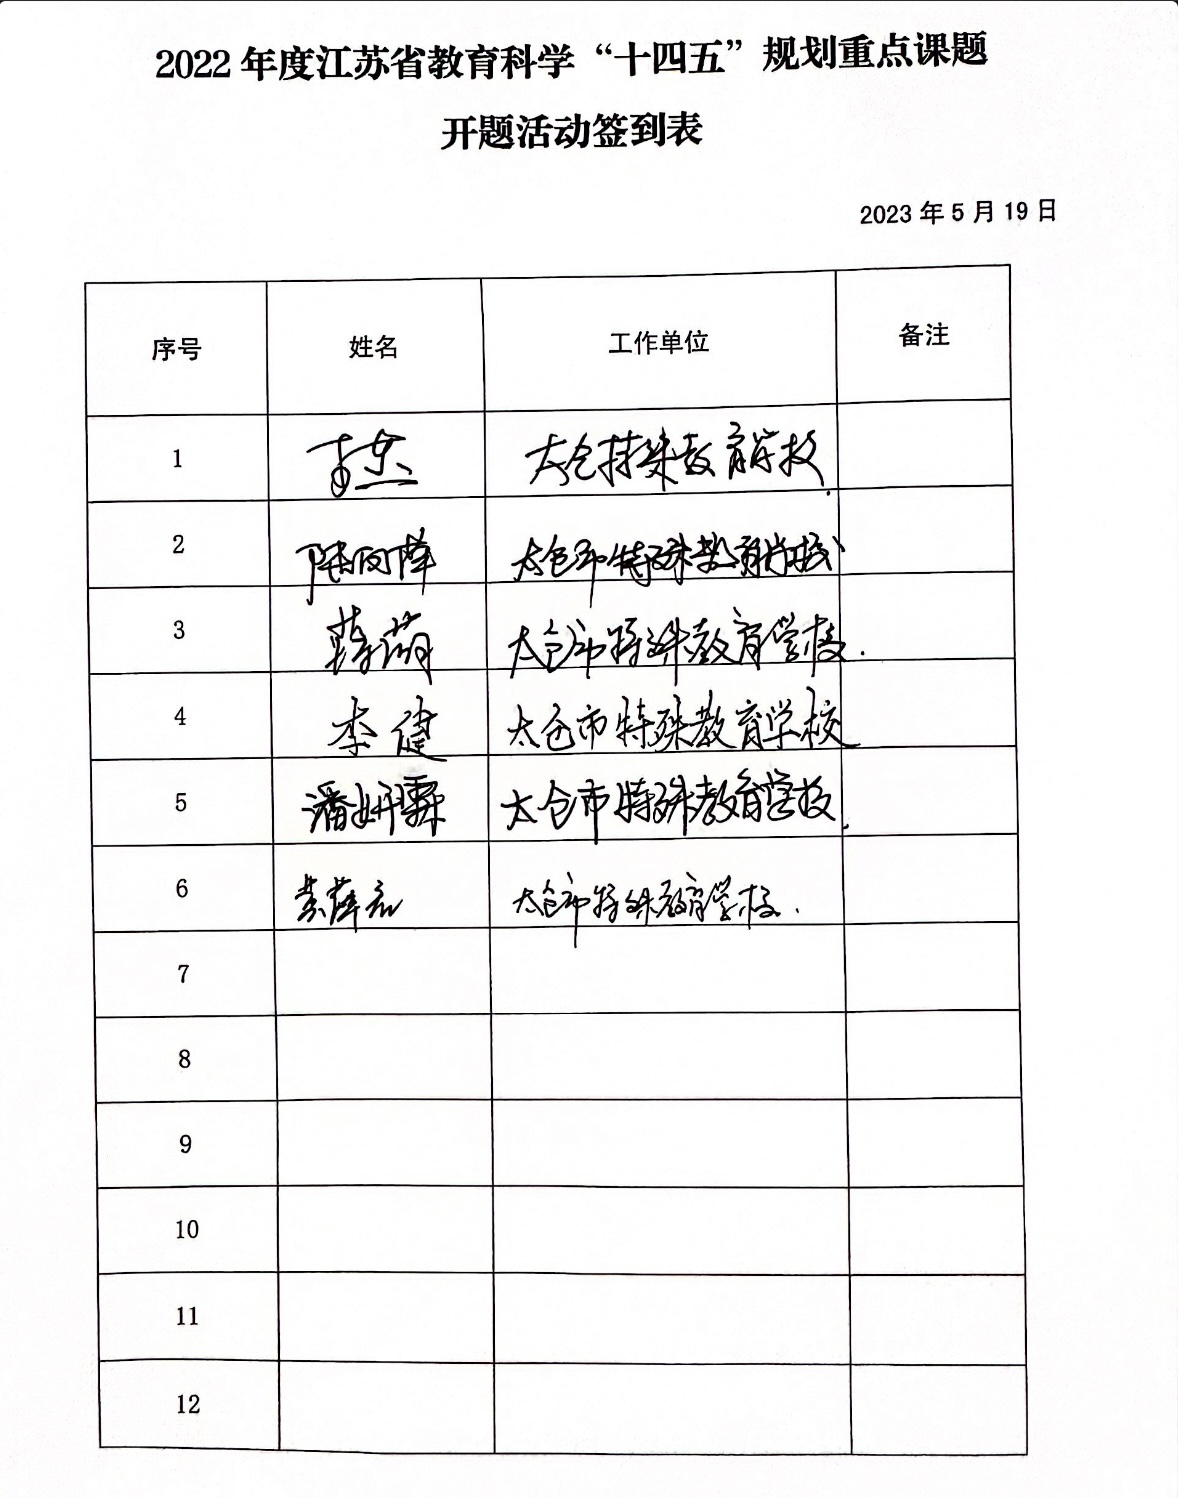 2022 年度江苏省教育科学“十四五”规划重点课题
开题活动签到表
2023 年 5 月 19 日
序号 姓名 工作单位 备注
1 太仓特殊教育学校
2 陆向萍 太仓市特殊教育学校
3 蒋萌 太仓市特殊教育学校.
4 李健 太仓市特殊教育学校
5 潘妍霖 太仓市特殊教育学校.
6 太仓市特殊教育学校.
7
8
9
10
11
12